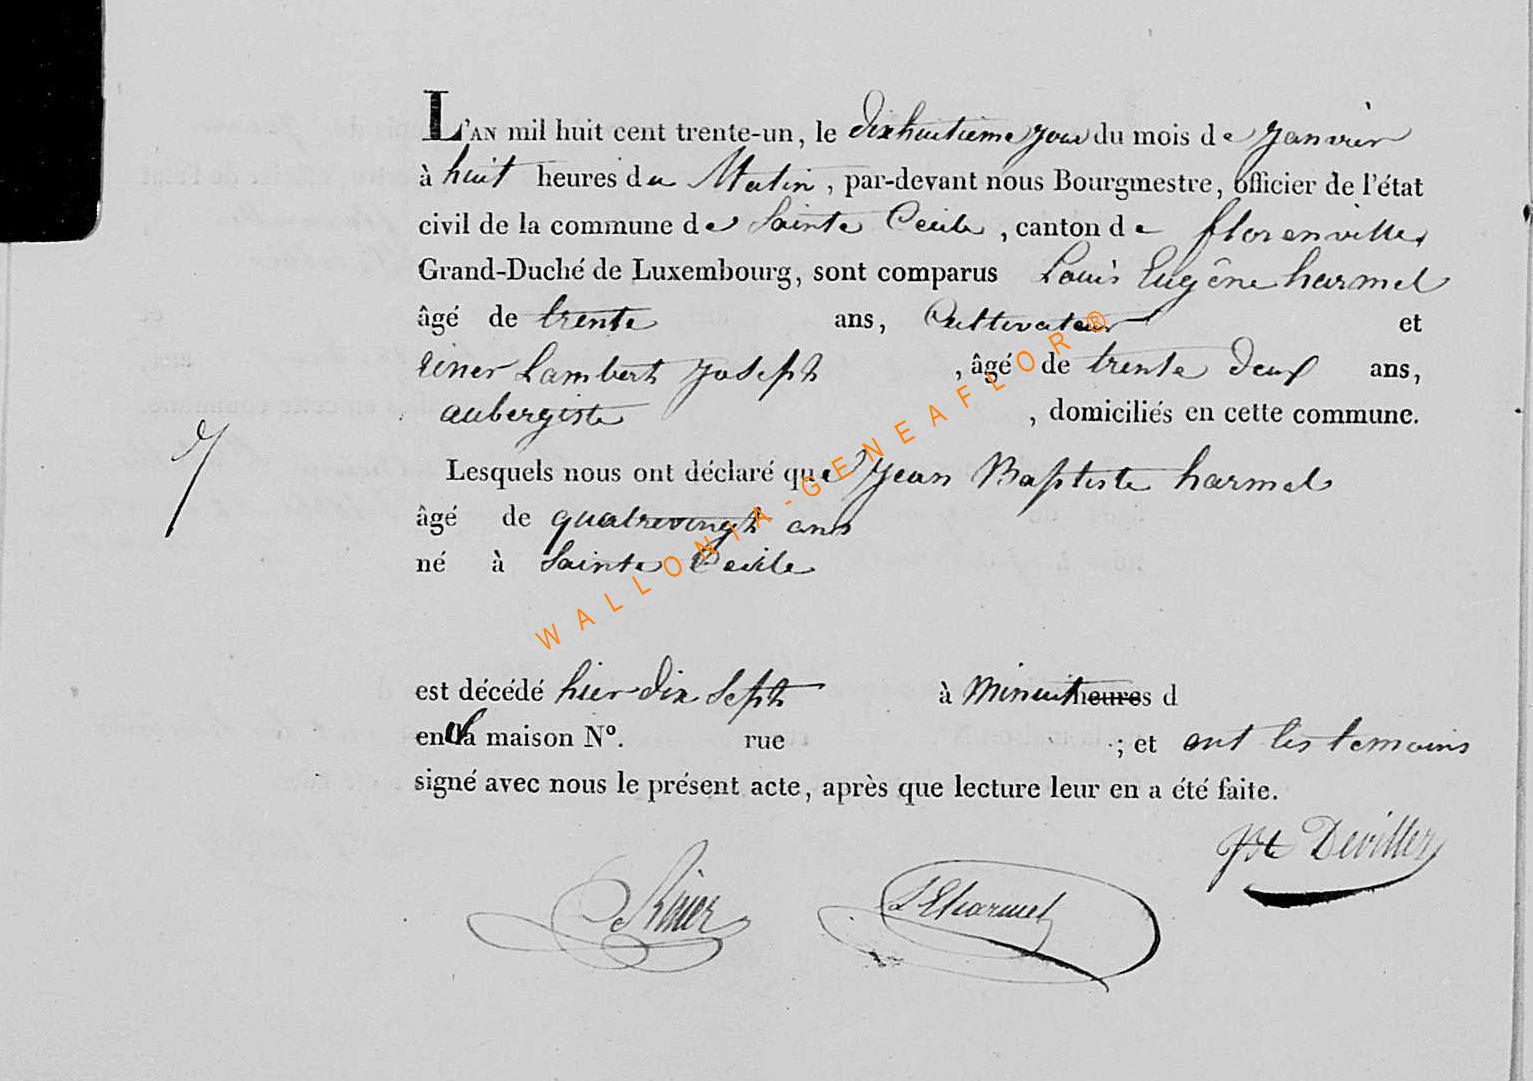 L'AN mil huit cent trente-un, le dixhuitieme jour du mois de janvier
à huit heures du Matin, par-devant nous Bourgmestre, officier de l'état
civil de la commune de Sainte Cecile, canton de florenville
Grand-Duché de Luxembourg, sont comparus Louis Eugêne harmel
âgé de trente ans, Cultivateur et
riner Lambert joseph, âgé de trente deux ans,
aubergiste, domiciliés en cette commune.
7
Lesquels nous ont déclaré que jean Baptiste harmel
âgé de quatrevingt ans
né à Sainte Cecile
est décédé hier dix sept à minuit heures d
en la maison N°. rue ; et ont les temoins
signé avec nous le présent acte, après que lecture leur en a été faite.
Jh Deviller
Riner
LEharmel
WALLONIA-GENEAFLOR®